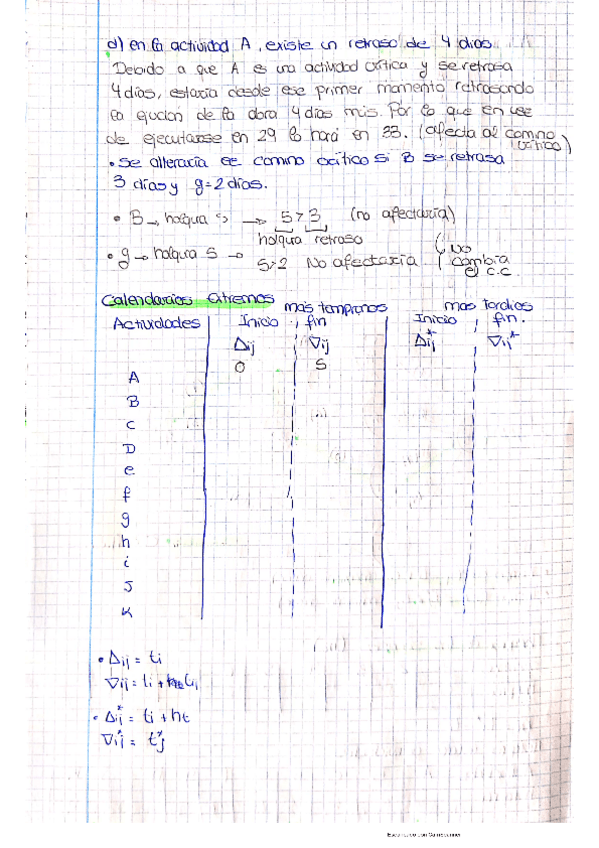 d) en la actividad A, existe un retraso de 4 dias
Debido a que A es una actividad crítica y se retrasa
4 dias, estaría desde ese primer momento retrasando
la ejucion de la obra 4 dias más. Por lo que en vez
de ejecutarse en 29 lo hará en 33. (afecta al camino crítico)
• Se alteraría el camino crítico si B se retrasa
3 dias y g=2 dias.
• B → holgura 5 → 5 > 3 (no afectaría)
holgura retraso
• g → holgura 5 → 5>2 No afectaría (no cambia el c.c.
Calendarios extremos
más tempranos mas tardios
Actividades Inicio fin Inicio fin.
Δij ∇ij Δij* ∇ij*
A 0 5
B
C
D
e
f
g
h
i
J
K
• Δij = ti
∇ij = ti +
• Δij* = ti + ht
∇ij* = tj*